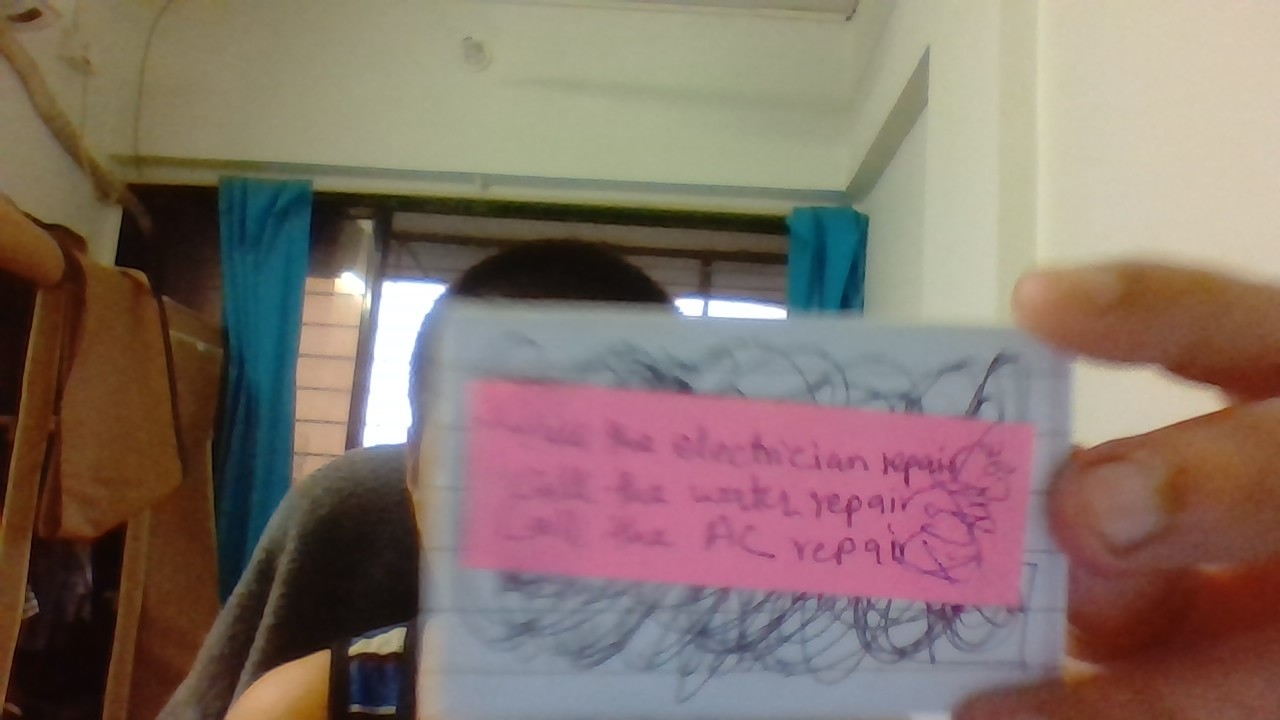 the electrician repair
Call the water repair
Call the AC repair